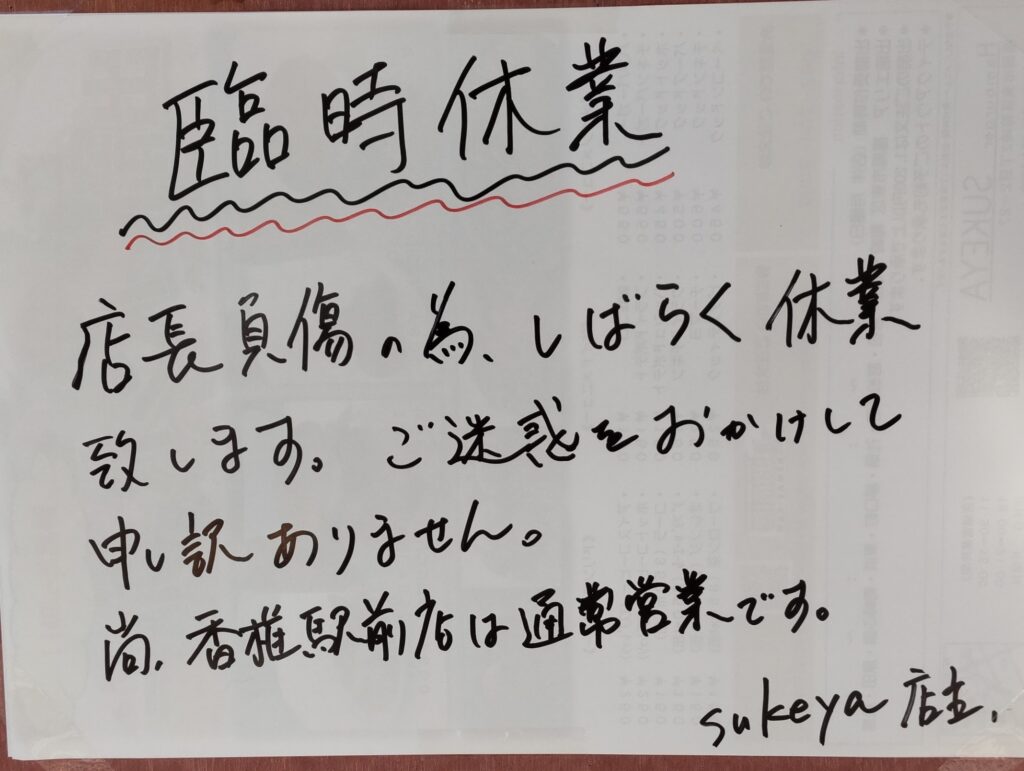 臨時休業
店長負傷の為、しばらく休業
致します。ご迷惑をおかけして
申し訳ありません。
尚、香椎駅前店は通常営業です。
sukeya 店主.